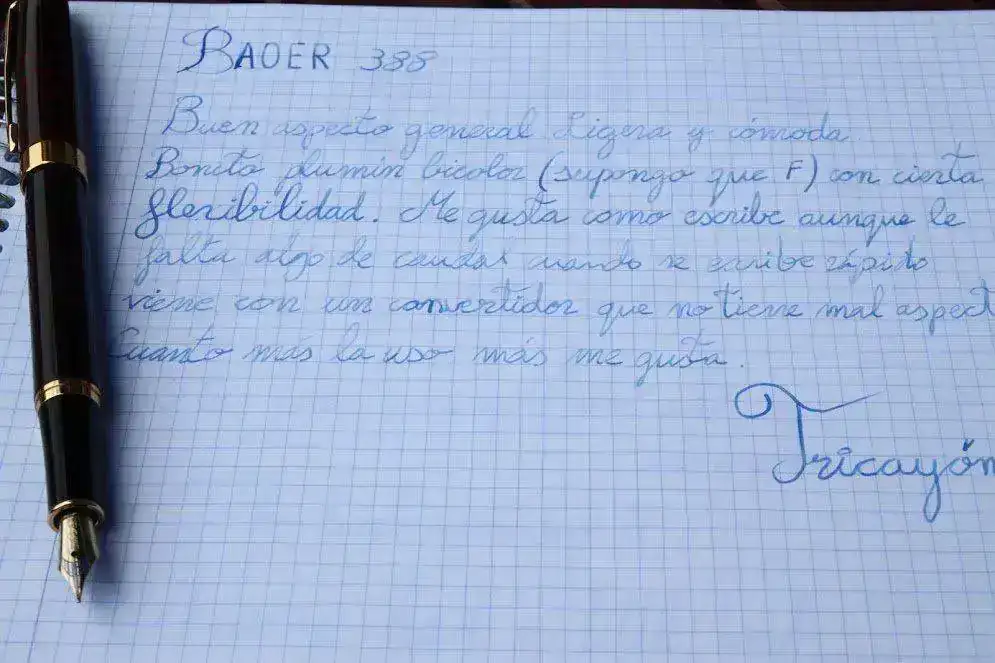 BAOER 388
Buen aspecto general. Ligera y cómoda.
Bonito plumín bicolor (supongo que F) con cierta
flexibilidad. Me gusta como escribe aunque le
falta algo de caudal cuando se escribe rápido
viene con un convertidor que no tiene mal aspect
Cuanto más la uso más me gusta.
Tricayón